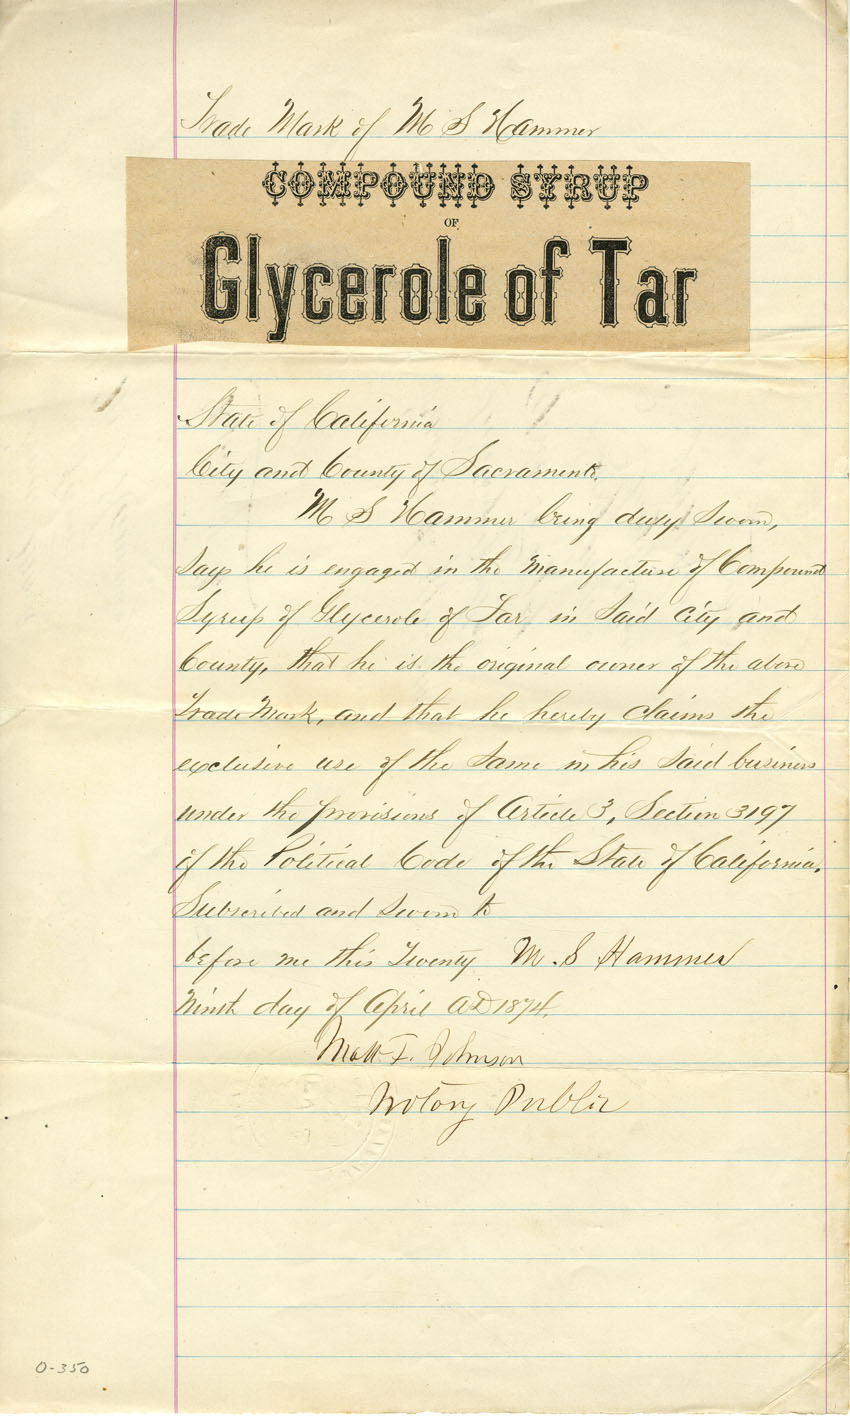 Trade Mark of M S Hammer
COMPOUND SYRUP
OF
Glycerole of Tar
State of California
City and County of Sacramento.
M S Hammer being duly sworn,
says he is engaged in the manufacture of Compound
Syrup of Glycerole of Tar in said city and
County, that he is the original owner of the above
Trade Mark, and that he hereby claims the
exclusive use of the same in his said business
under the provisions of Article 3, Section 3197
of the Political Code of the State of California.
Subscribed and sworn to
before me this Twenty M. S Hammer
Ninth day of April AD 1874.
Matt F. Johnson
Notary Public
0-350